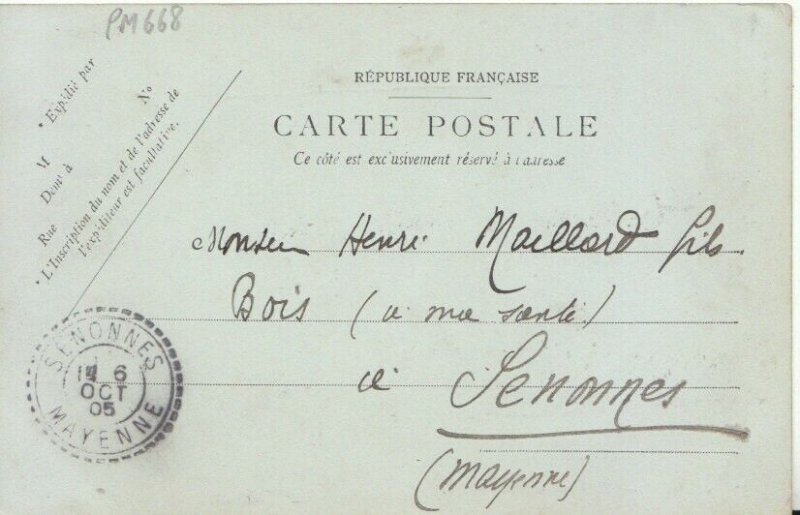 PM668
* Expédié par
M N°
Dem^t à
Rue
* L'Inscription du nom et de l'adresse de
l'expéditeur est facultative.
RÉPUBLIQUE FRANÇAISE
CARTE POSTALE
Ce côté est exclusivement réservé à l'adresse
Monsieur Henri Maillard fils
Bois (à ma santé)
à Senonnes
(Mayenne)
SENONNES
6
OCT
05
MAYENNE